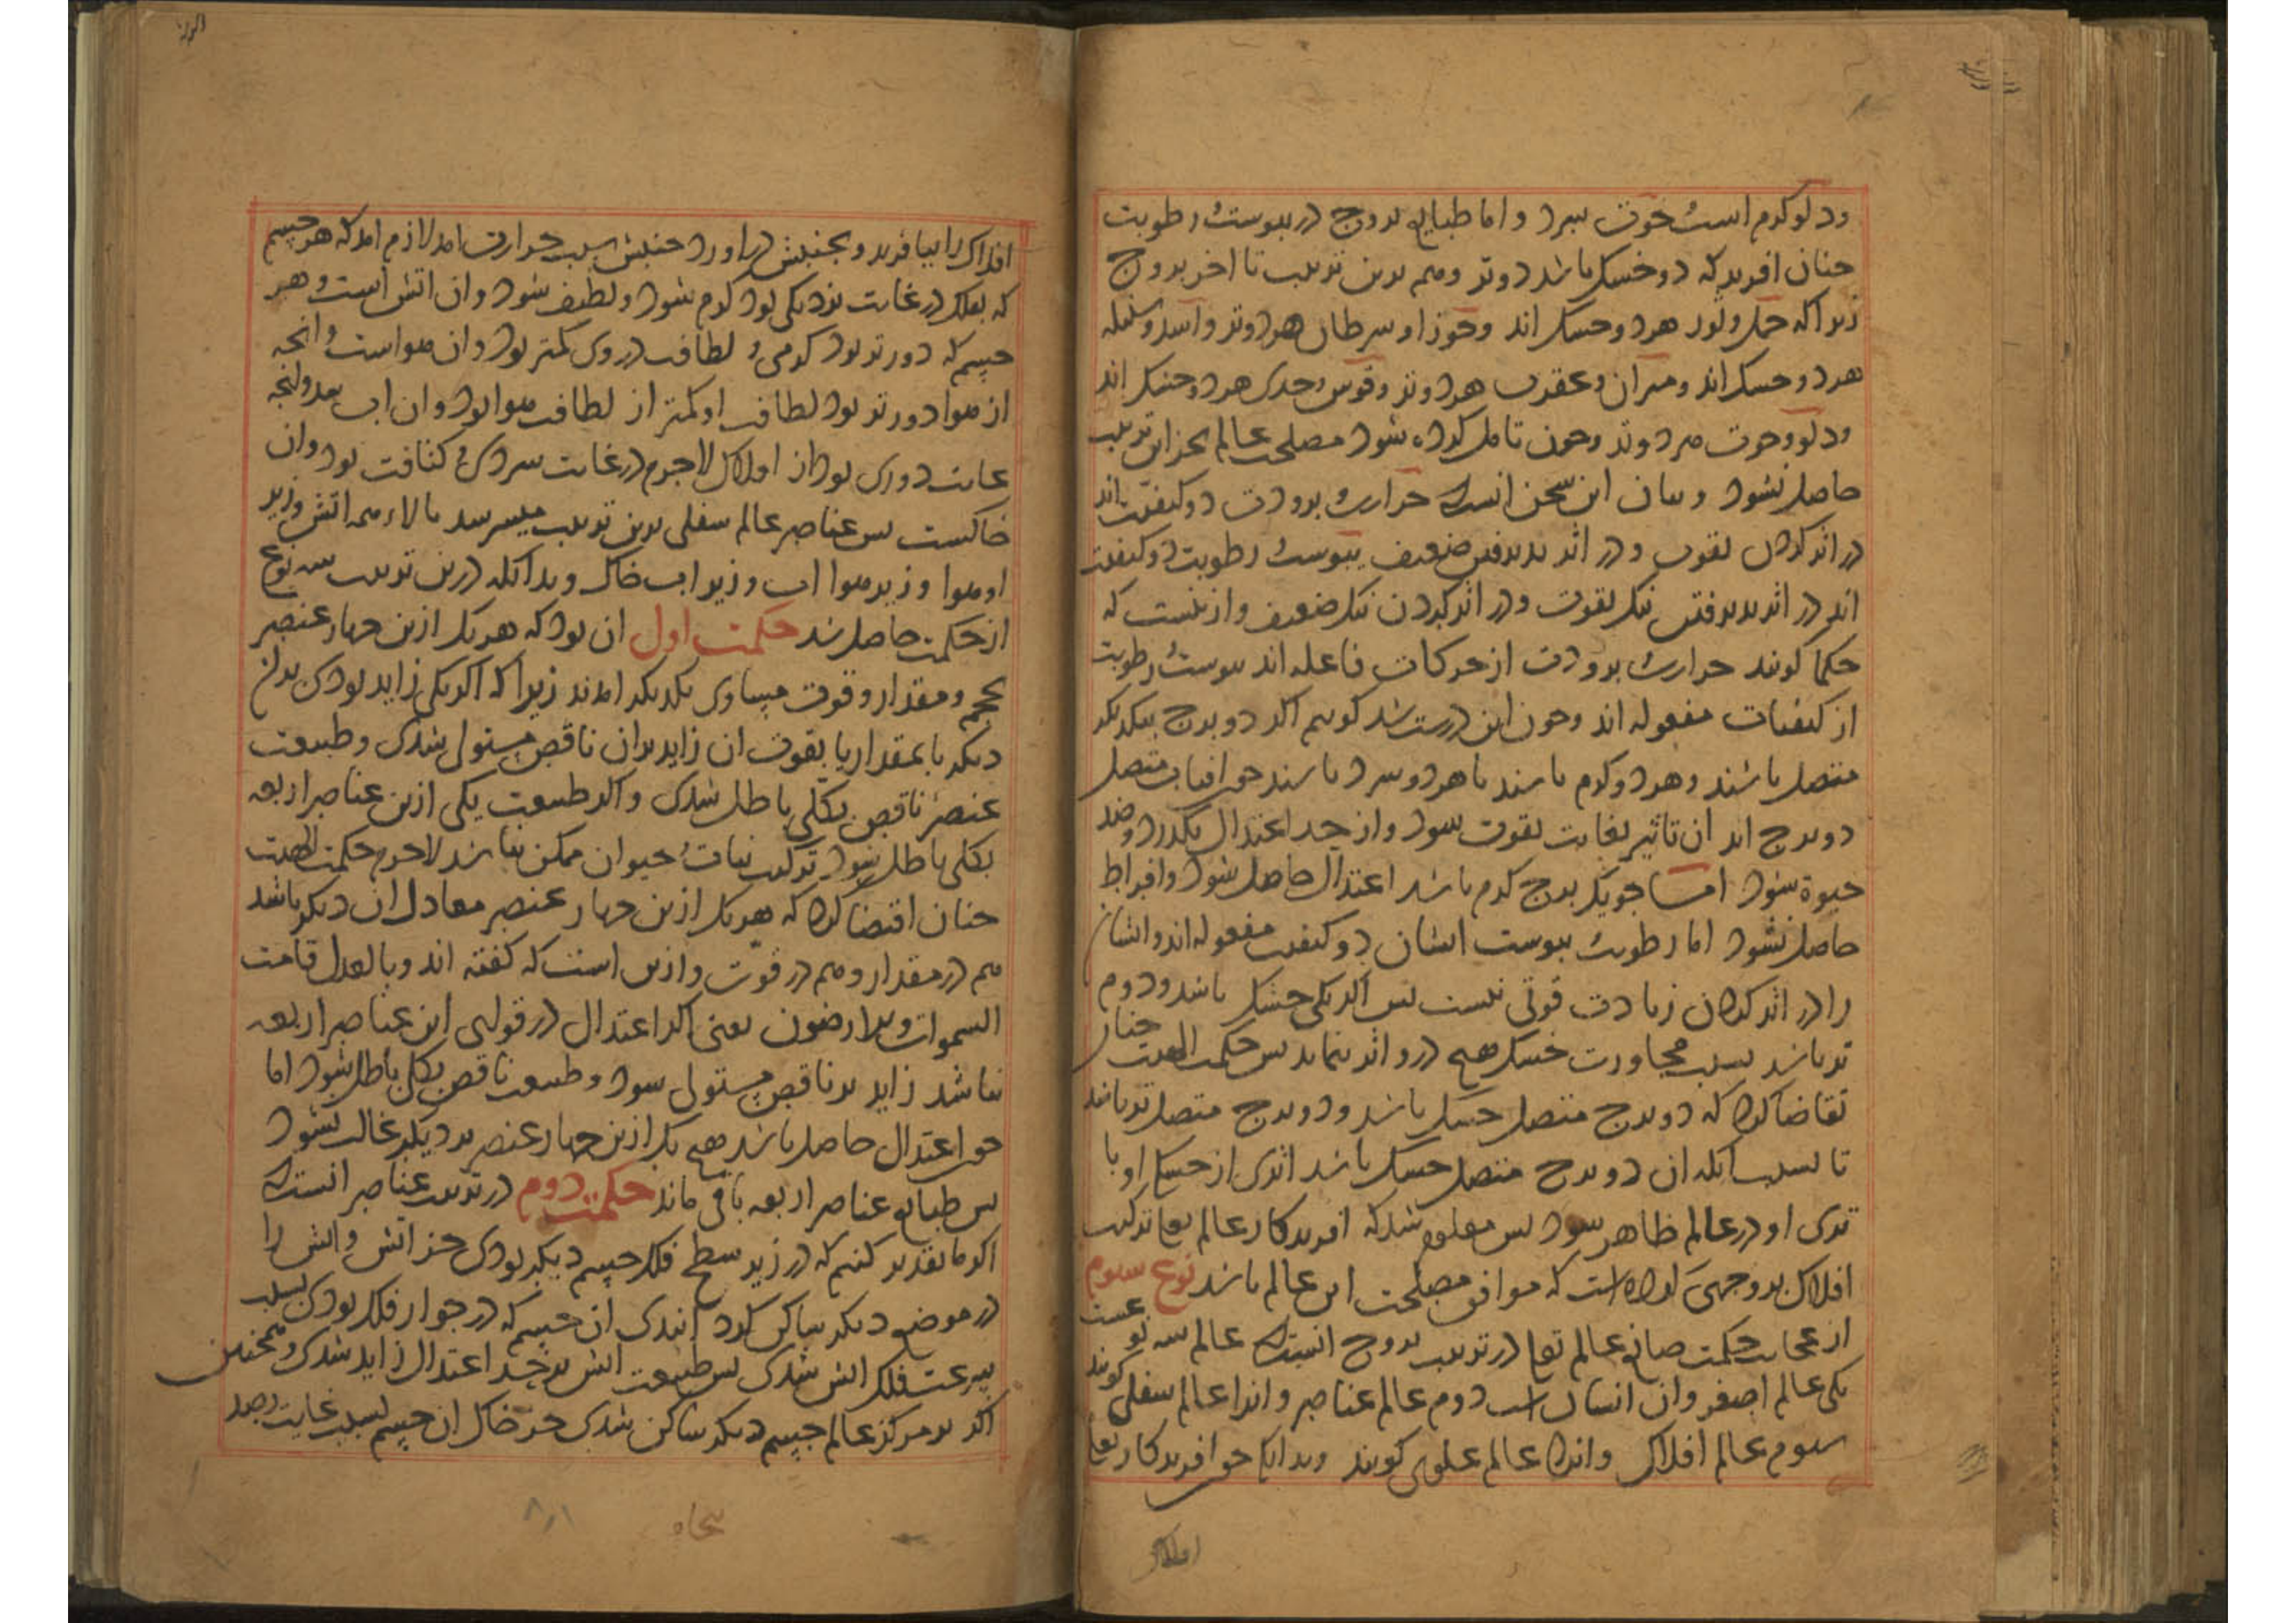 ودلو کرم است و حوت سرد و اما طبایع بروج در یبوست و رطوبت
چنان افرید که دو خشک باشد دو تر و هم برین ترتیب تا اخر بروج
زیرا که حمل و ثور هر دو خشک اند و جوزا و سرطان هر دو تر و اسد و سنبله
هر دو خشک اند و میزان و عقرب هر دو تر و قوس و جدی هر دو خشک اند
ودلو و حوت هر دو تر و چون تامل کرده شود مصلحت عالم بجز این ترتیب
حاصل نشود و بیان این سخن انست که حرارت و برودت دو کیفیت اند
در اثر کردن بقوت و در اثر پذیرفتن ضعیف یبوست و رطوبت دو کیفیت
اند در اثر پذیرفتن نیک بقوت و در اثر کردن نیک ضعیف و ازینست که
حکما کویند حرارت و برودت از حرکات فاعله اند یبوست و رطوبت
از کیفیات مفعوله اند و چون این درست شد کوییم اکر دو برج بیکدیکر
متصل باشند و هر دو کرم باشند یا هر دو سرد باشند چون افتاب متصل
دو برج اید ان تاثیر بغایت بقوت شود و از حد اعتدال بکذرد و ضد
حیوة شود اما چو یک برج کرم باشد اعتدال حاصل شود و افراط
حاصل نشود اما رطوبت یبوست ایشان دو کیفیت مفعوله اند و ایشان
را در اثر کردن زیادت قوتی نیست پس اکر یکی خشک باشد و دوم
تر باشد بسبب مجاورت خشک هیچ در و اثر ننماید پس حکمت الهیت چنان
تقاضا کرد که دو برج متصل خشک باشد و دو برج متصل تر باشد
تا بسبب انکه ان دو برج متصل خشک باشد اثری از خشکی او یا
تری او در عالم ظاهر شود پس معلوم شد که افریدکار عالم تعا ترکیب
افلاک بر وجهی کرده است که موافق مصلحت این عالم باشد نوع سیوم
از عجایب حکمت صانع عالم تعا در ترتیب بروج انست که عالم سه نوعست
یکی عالم اصغر و ان انسان است دوم عالم عناصر و انرا عالم سفلی کویند
سیوم عالم افلاک و انرا عالم علوی کویند و بدانک چو افریدکار تعا
افلاک
افلاک را بیافرید و بجنبش در اورد جنبش سبب حرارت امد لازم امد که هر جسم
که بفلک در غایت نزدیکی بود کرم شود و لطیف شود و ان اتش است و هر
جسم که دورتر بود کرمی و لطافت در وی کمتر بود و ان هواست و انچه
از هوا دورتر بود لطافت او کمتر از لطافت هوا بود و ان اب بود و انچه
غایت دوری بود از افلاک لاجرم در غایت سردی و کثافت بود و ان
خاکست پس عناصر عالم سفلی برین ترتیب میسر شد بالاء همه اتش و زیر
او هوا و زیر هوا اب و زیر اب خاک و بدانکه درین ترتیب سه نوع
از حکمت حاصل شد حکمت اول ان بود که هر یک ازین چهار عنصر
بحجم و مقدار و قوت مساوی یکدیکر امدند زیرا که اکر یکی زاید بودی بدان
دیکر یا بمقدار یا بقوت ان زاید بران ناقص مستولی شدی و طبیعت
عنصر ناقص بکلی باطل شدی و اکر طبیعت یکی ازین عناصر اربعه
بکلی باطل شود ترکیب نبات و حیوان ممکن نباشد لاجرم حکمت الهیت
چنان اقتضا کرد که هر یک ازین چهار عنصر معادل ان دیکر باشد
هم در مقدار و هم در قوت و ازین است که کفته اند و بالعدل قامت
السموات و الارضون یعنی اکر اعتدال در قولی این عناصر اربعه
نباشد زاید بر ناقص مستولی شود و طبیعت ناقص بکلی باطل شود اما
چو اعتدال حاصل باشد هیچ یک ازین چهار عنصر بر دیکر غالب نشود
پس طبایع عناصر اربعه باقی ماند حکمت دوم در ترتیب عناصر انست که
اکر ما تقدیر کنیم که در زیر سطح فلک جسم دیکر بودی جز اتش و اتش را
در موضع دیکر ساکن کردانیدی ان جسم که در جوار فلک بودی بسبب
سرعت فلک اتش شدی پس طبیعت اتش بر حد اعتدال زاید شدی و همچنین
اکر بر مرکز عالم جسم دیکر ساکن شدی جز خاک ان جسم بسبب غایت بعد